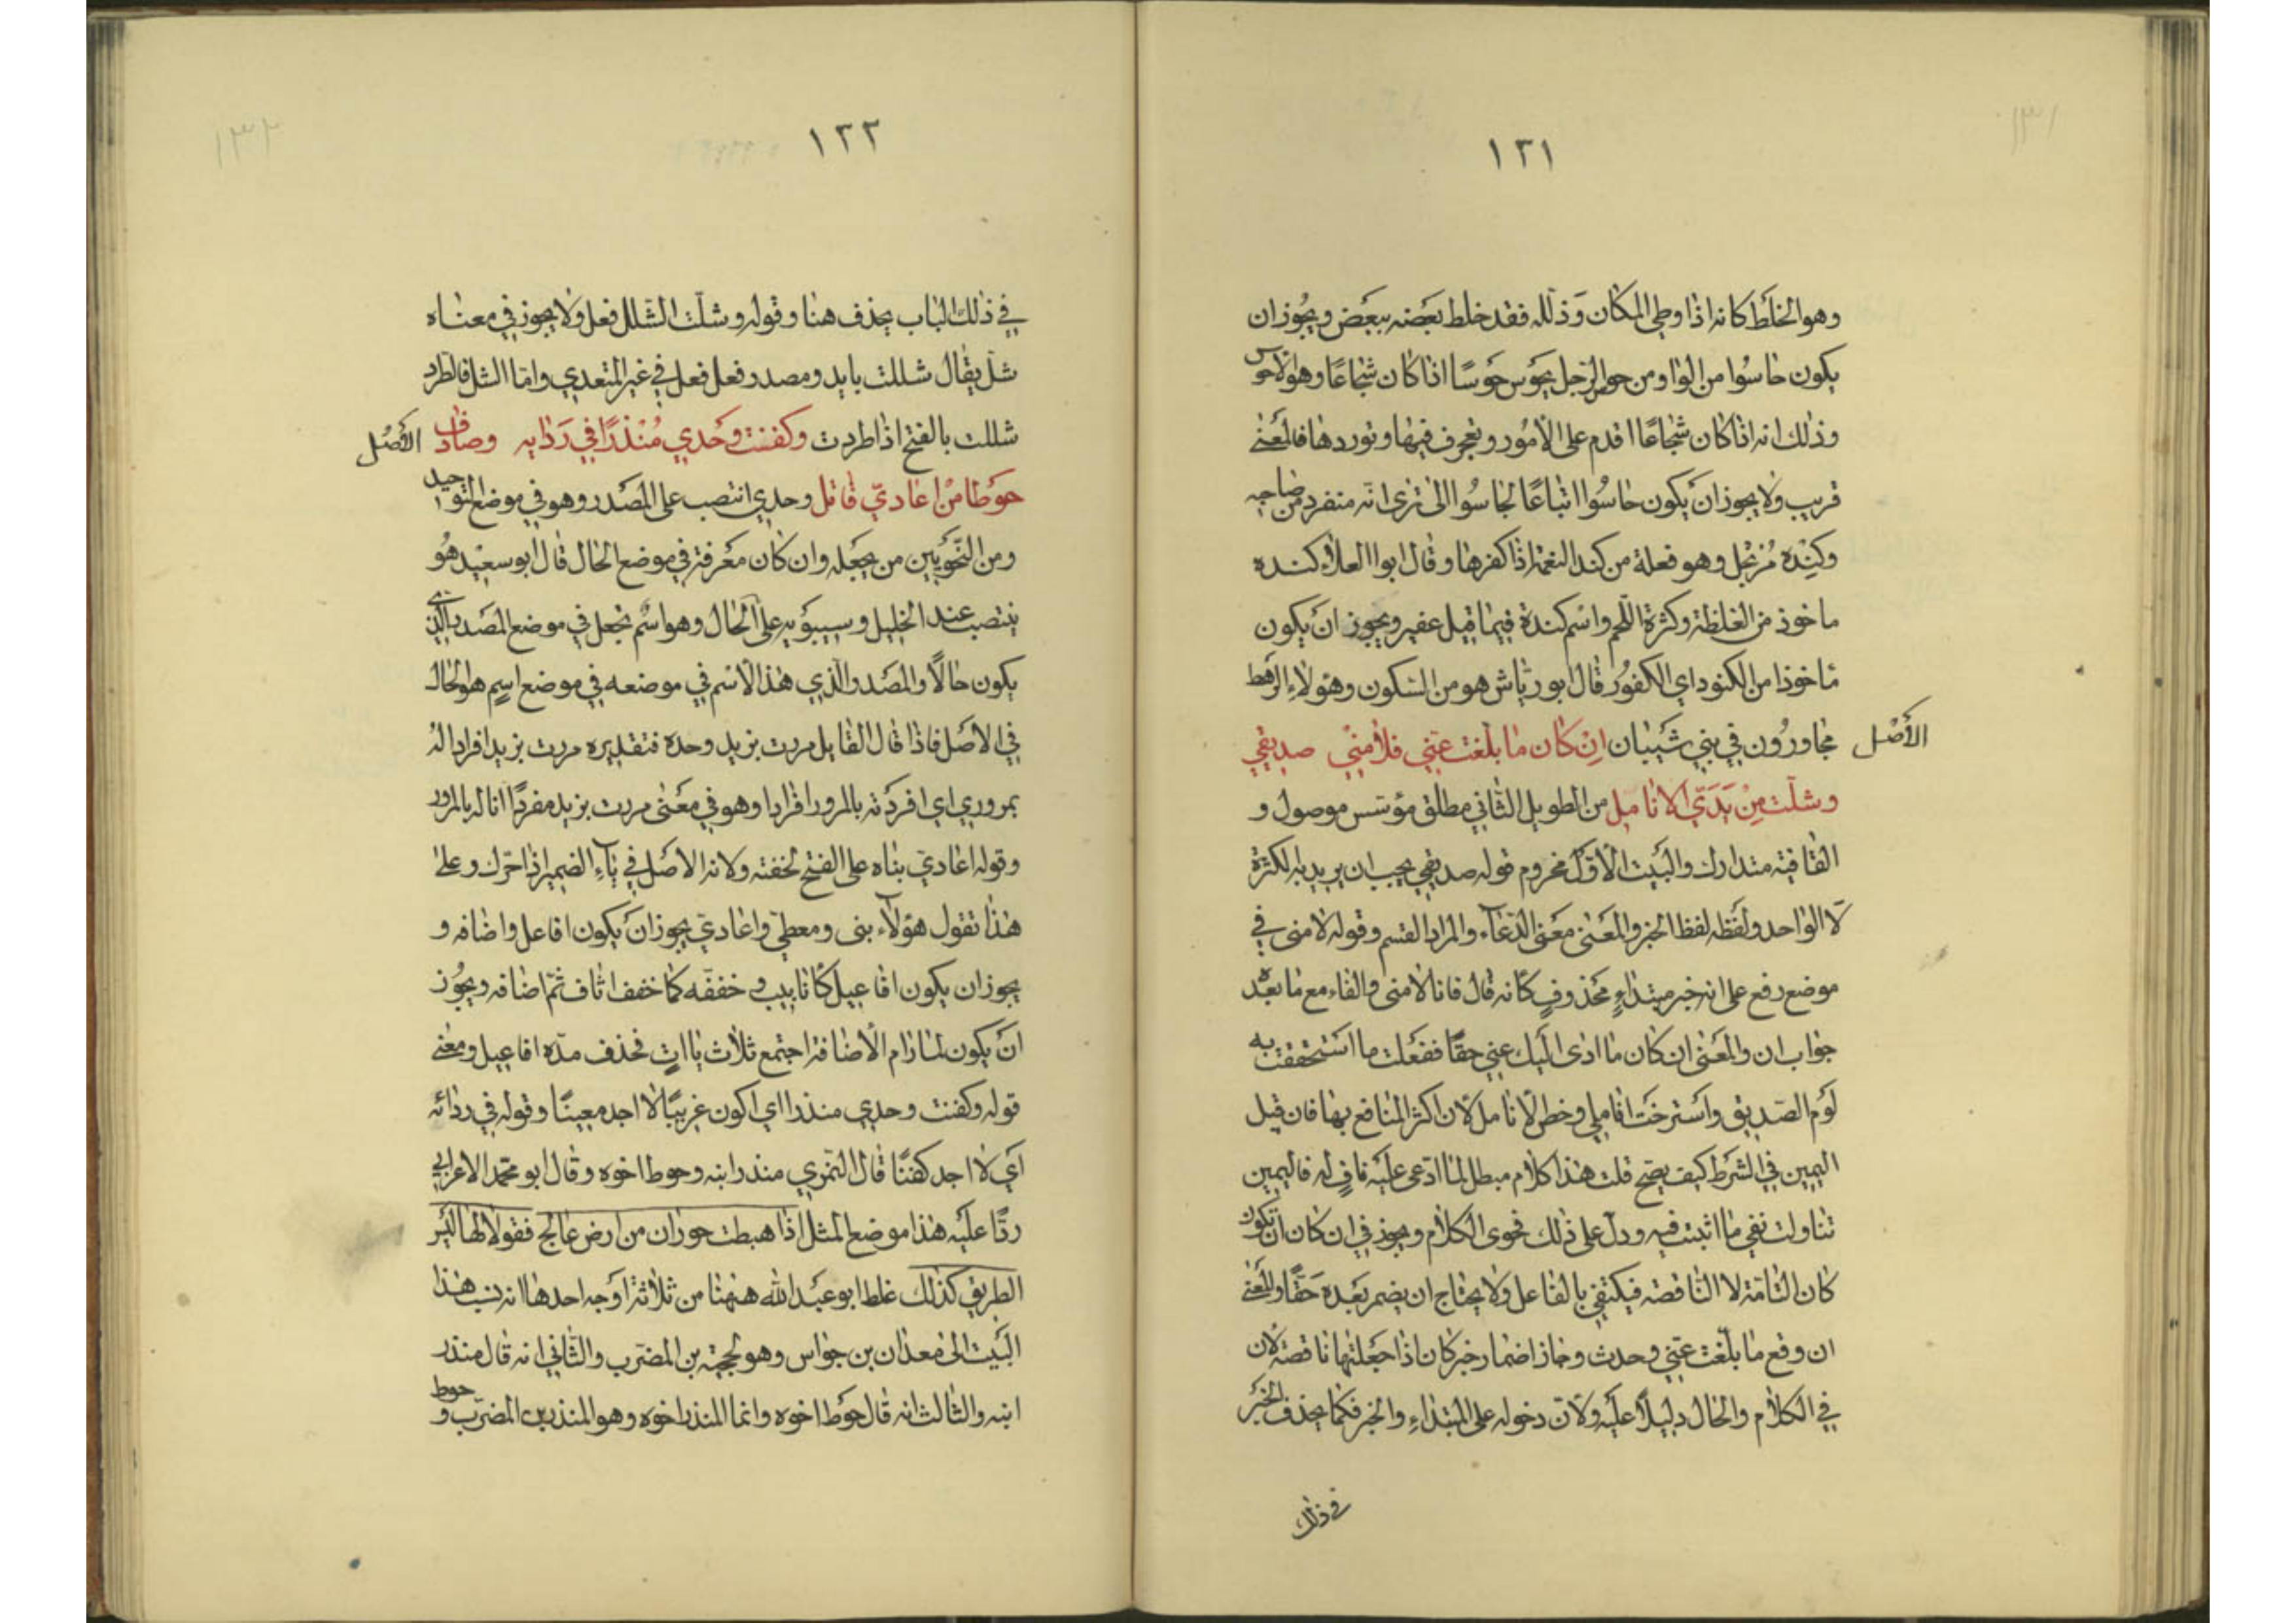 ١٣١
١٢١
وهو الخلط كانه اذا وطى المكان وذلله فقد خلط بعضه ببعض ويجوز ان
يكون حاسوا من الواو ومن حوس الرجل يحوس حوسًا اذا كان شجاعًا وهو الاحوس
وذلك انه اذا كان شجاعًا اقدم على الامور وتعجرف فيها وتوردها فالمعنى
قريب ولا يجوز ان يكون حاسوا اتباعًا لجاسوا الى ترى انه منفرد من صاحبه
وكندة مرتجل وهو فعلة من كند النعمة اذا كفرها وقال ابو العلاء كندة
ماخوذ من الغلظة وكثرة اللحم واسم كندة فيما قيل عفير ويجوز ان يكون
ماخوذا من الكنود اي الكفور قال ابو رياش هو من السكون وهؤلاء الرهط
مجاورون في بني شيبان ان كان ما بلغت عني فلامني صديقي
الأصل
وشلّت من يدي الانامل من الطويل الثاني مطلق مؤسس موصول و
القافية متدارك والبيت الاول مخروم قوله صديقي يجب ان يريد به الكثرة
لا الواحد ولفظه لفظ الخبر والمعنى معنى الدعاء والمراد القسم وقوله لامنى في
موضع رفع على انه خبر مبتداء محذوف كانه قال فانا لامنى والفاء مع ما بعده
جواب ان والمعنى ان كان ما ادى اليك عني حقًا ففعلت ما استحققت به
لوم الصديق واسترخت اناملي وخص الانامل لان اكثر المنافع بها فان قيل
اليمين في الشرط كيف يصح قلت هذا كلام مبطل لما ادعى عليه ناف له فاليمين
تناولت نفي ما اثبت فيه ودل على ذلك فحوى الكلام ويجوز في ان كان ان تكون
كان التامة لا الناقصة فيكتفي بالفاعل ولا يحتاج ان يضمر بعده حقًا والمعنى
ان وقع ما بلّغت عني وحدث وجاز اضمار خبر كان اذا جعلتها ناقصة لان
في الكلام والحال دليلًا عليه ولان دخوله على المبتداء والخبر فكما يحذف الخبر
في ذلك
١٣٢
١٢٢
في ذلك الباب يحذف هنا وقوله وشلّت الشلل فعل ولا يجوز في معناه
شلّ يقال شللت يا يد ومصدر فعل فعل في غير المتعدي واما الشل فالطرد
شللت بالفتح اذا طردت وكفنت وحدي منذرًا في ردايه وصادف
الأصل
حوطا من اعاديّ قاتل وحدي انتصب على المصدر وهو في موضع التوحيد
ومن النحويين من يجعله وان كان معرفة في موضع الحال قال ابو سعيد هو
ينتصب عند الخليل وسيبويه على الحال وهو اسم تجعل في موضع المصدر الذي
يكون حالًا والمصدر الذي هذا الاسم في موضعه في موضع اسم هو الحال
في الاصل فاذا قال القايل مررت بزيد وحده فتقديره مررت بزيد افرادا له
بمروري اي افردته بالمرور افرادا وهو في معنى مررت بزيد مفردًا انا له بالمرور
وقوله اعاديّ بناه على الفتح لخفته ولانه الاصل في ياء الضمير اذا حرّك وعلى
هذا تقول هؤلاء بنى ومعطيّ واعاديّ يجوز ان يكون افاعل واضافه و
يجوز ان يكون افاعيل كانابيب وخففه كما خفف اثاف ثم اضافه ويجوز
ان يكون لما رام الاضافة اجتمع ثلاث ياات فحذف مدّه افاعيل ومعنى
قوله وكفنت وحدي منذرا اي اكون غريبًا لا اجد معينًا وقوله في ردائه
اي لا اجد كفنًا قال النمري منذر ابنه وحوط اخوه وقال ابو محمد الاعرابي
ردًّا عليه هذا موضع المثل اذا هبطت حوران من ارض عالج فقولا لها ليس
الطريق كذلك غلط ابو عبد الله ههنا من ثلاثة اوجه احدها انه نسب هذا
البيت الى معدان بن جواس وهو لحجية بن المضرب والثاني انه قال منذر
ابنه والثالث انه قال حوط اخوه وانما المنذر اخوه وهو المنذر بن المضرّب وحوط